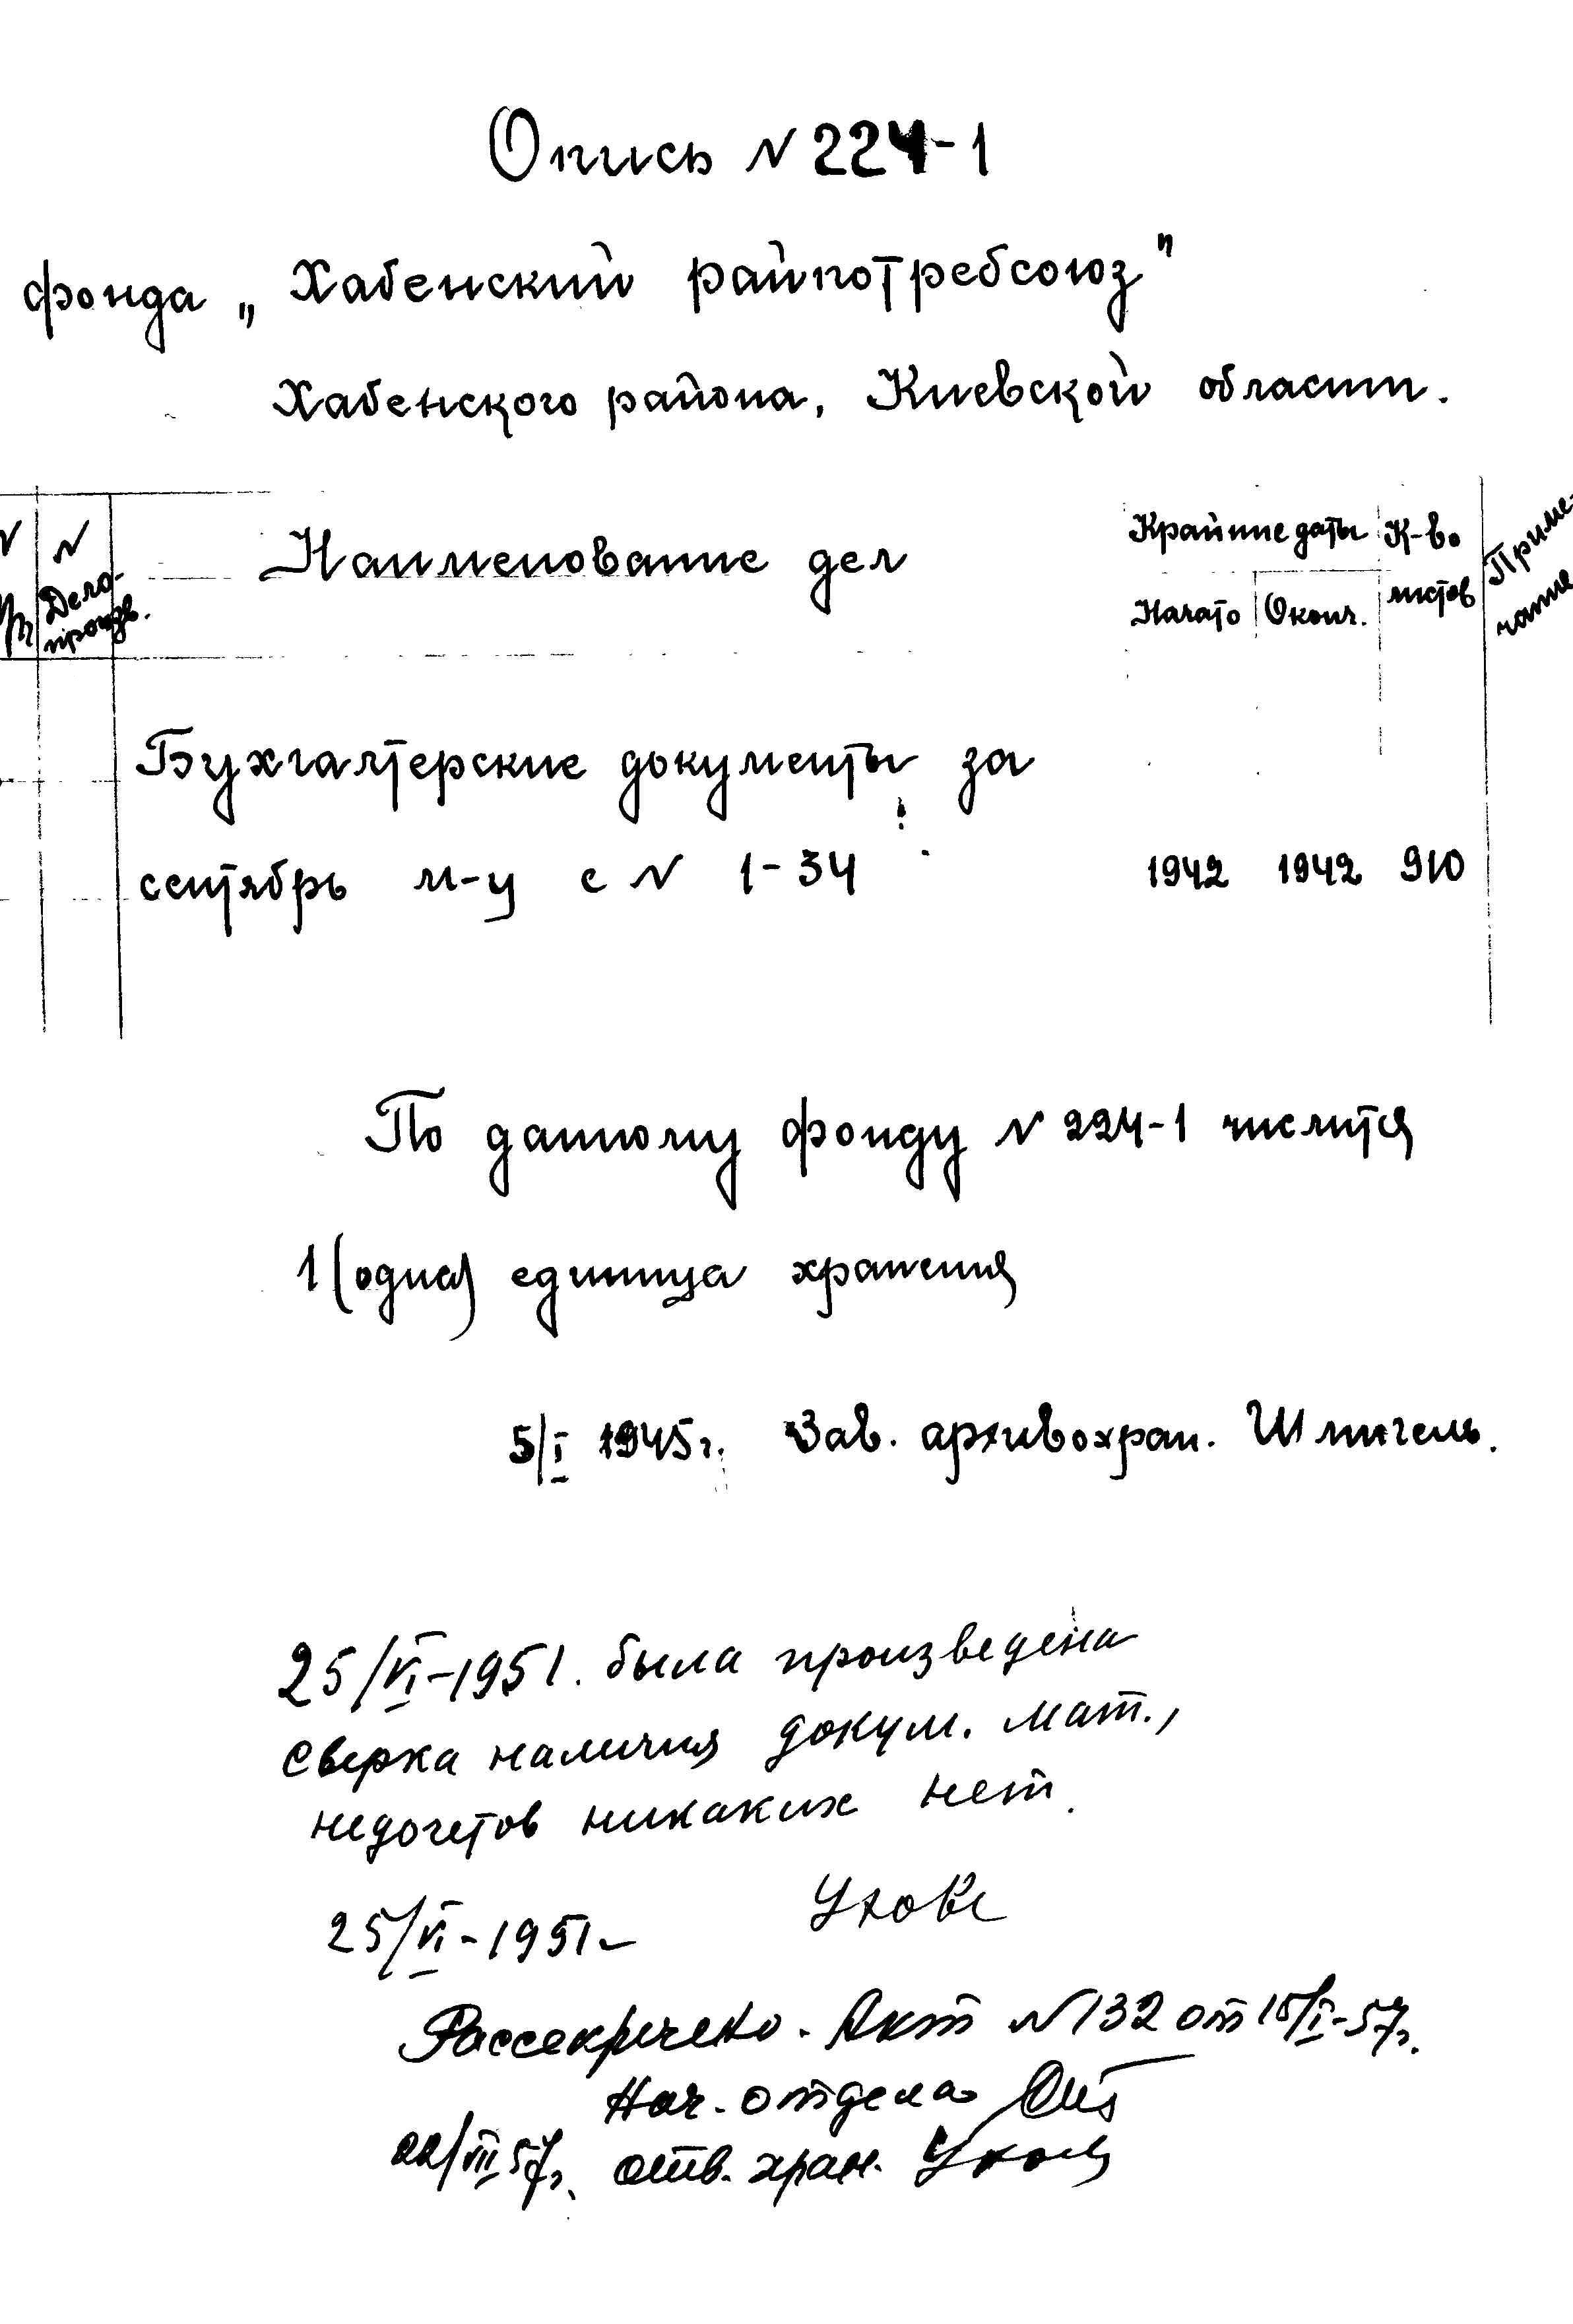 Опись N 224-1
фонда „Хабенский райпотребсоюз"
Хабенского района, Киевской области.
N
N
Дело-
произв.
Наименование дел
Крайние даты
Начато
Оконч.
К-во
листов
Приме-
чание
Бухгалтерские документы за
сентябрь м-ц с N 1-34 1942 1942 910
По данному фонду N 224-1 числится
1 (одна) единица хранения
5/I 1945 г. Зав. архивохран. Шпигель.
25/VI-1951. была произведена
сверка наличия докум. мат.,
недочетов никаких нет.
25/VI-1951
Рассекречено. Акт N 132 от 15/I-57г.
Нач. отдела
22/VII 57г. отв. хран.